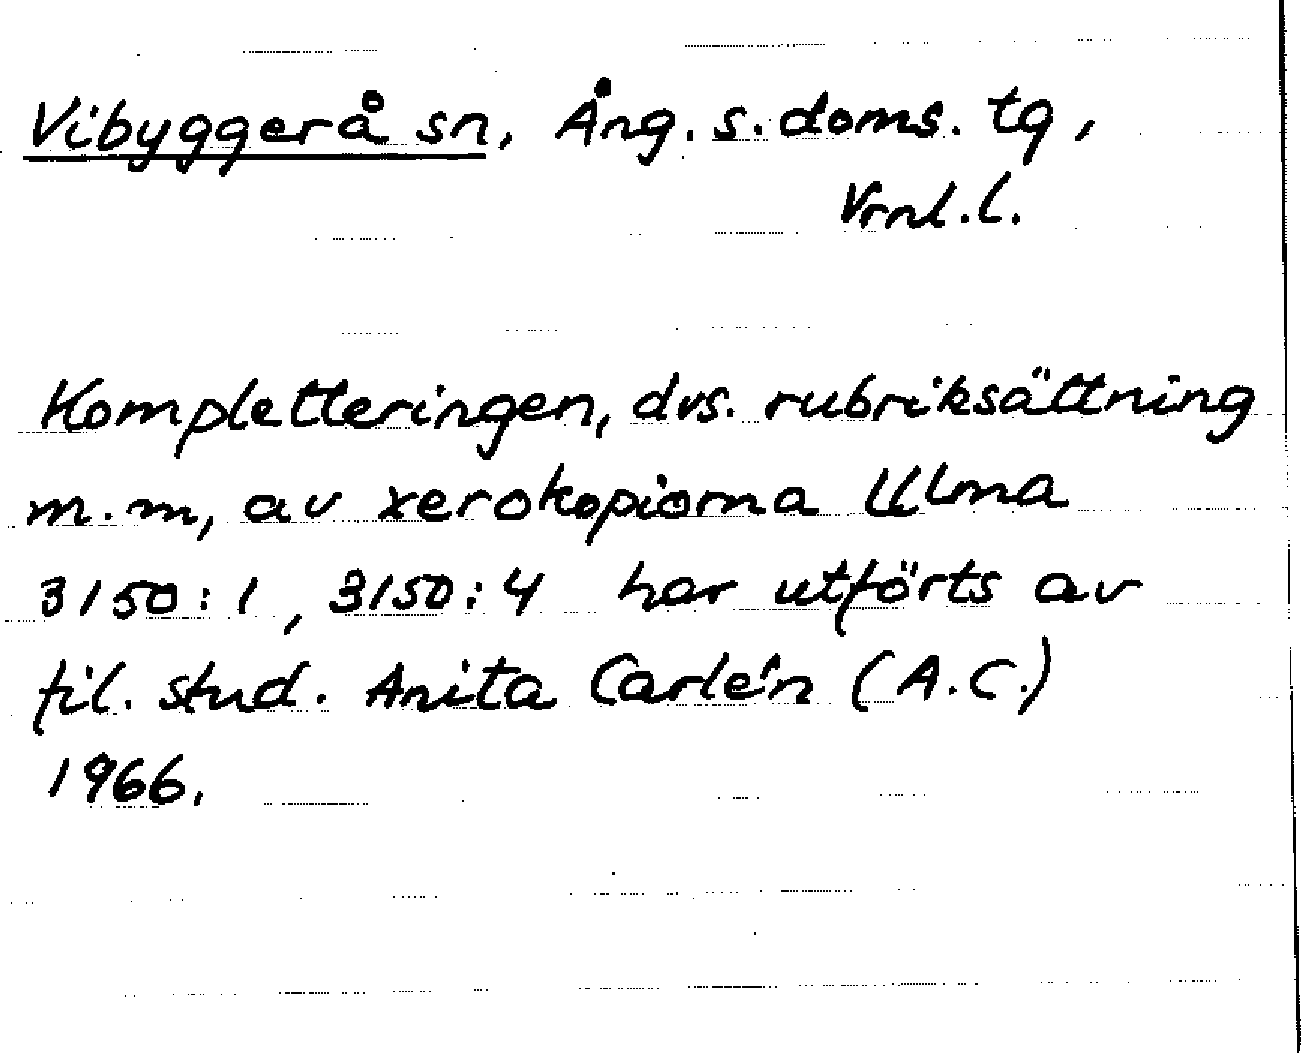 Vibyggerå sn, Ång. s. doms. tg,
Vrnl. l.
Kompletteringen, dvs. rubriksättning
m.m, av xerokopiorna ULma
3150:1, 3150:4 har utförts av
fil. stud. Anita Carlén (A.C.)
1966.